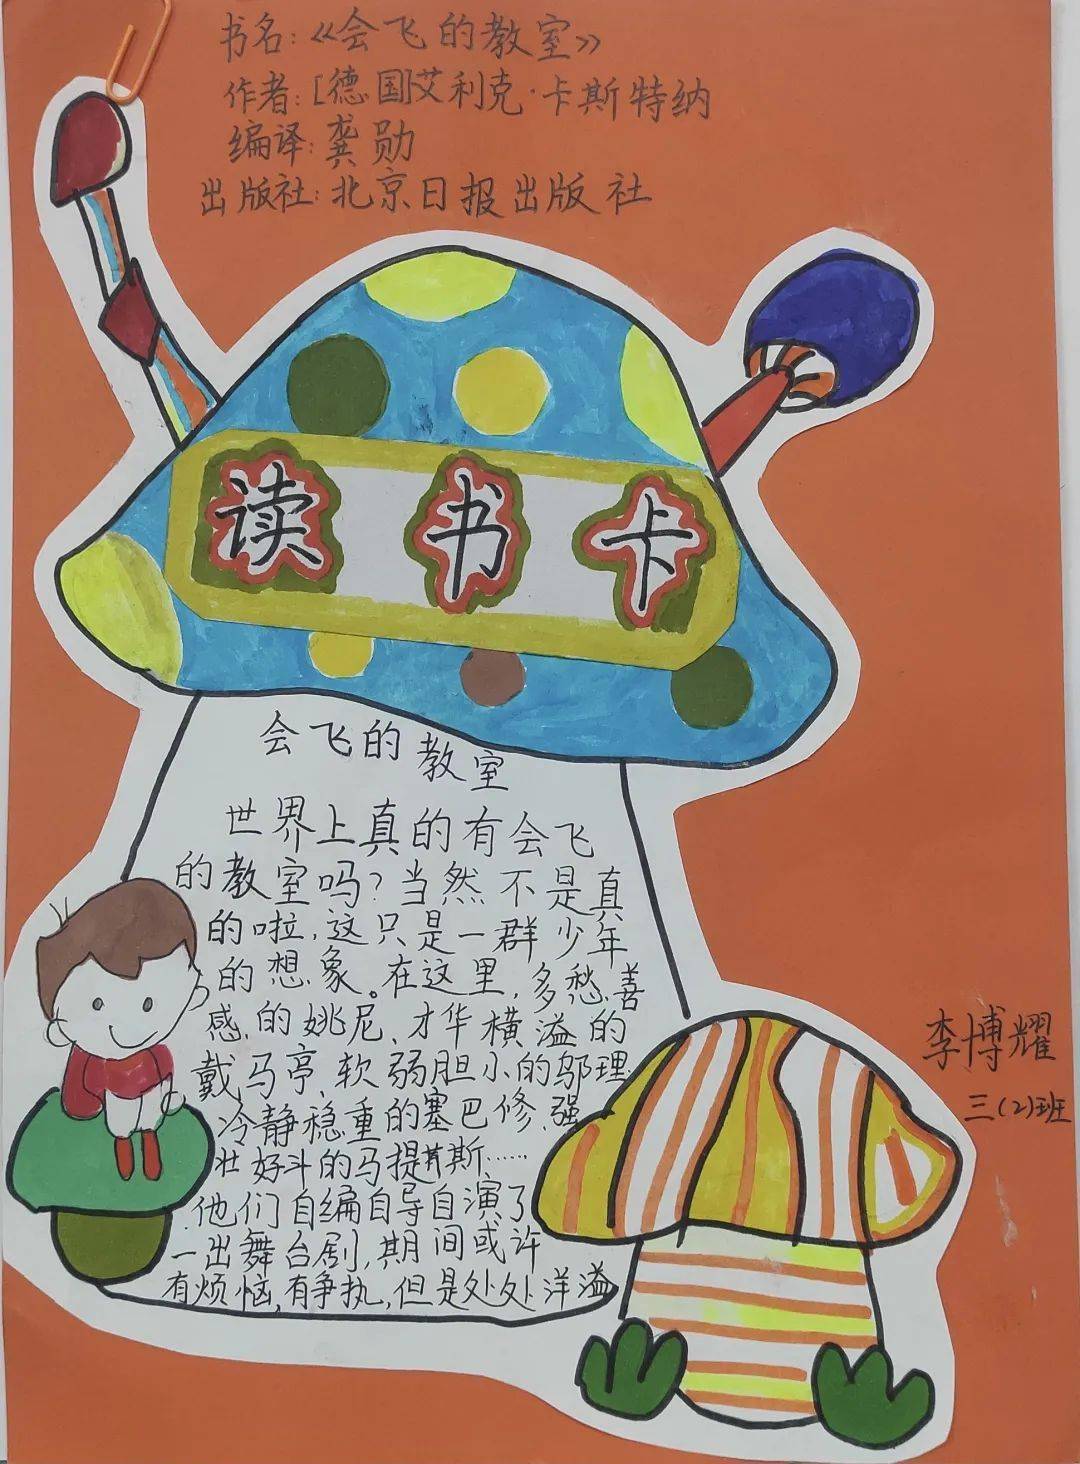 书名:《会飞的教室》
作者:[德国]艾利克·卡斯特纳
编译:龚勋
出版社:北京日报出版社
读书卡
会飞的教室
世界上真的有会飞
的教室吗?当然不是真
的啦,这只是一群少年
的想象。在这里,多愁善
感的姚尼、才华横溢的
戴马亭、软弱胆小的邬理、
冷静稳重的塞巴修、强
壮好斗的马提斯……
他们自编自导自演了
一出舞台剧,期间或许
有烦恼,有争执,但是处处洋溢
李博耀
三(2)班